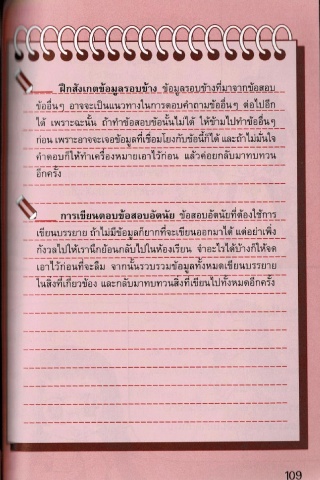 ฝึกสังเกตข้อมูลรอบข้าง ข้อมูลรอบข้างที่มาจากข้อสอบ
ข้ออื่นๆ อาจจะเป็นแนวทางในการตอบคำถามข้ออื่นๆ ต่อไปอีก
ได้ เพราะฉะนั้น ถ้าทำข้อสอบข้อนั้นไม่ได้ ให้ข้ามไปทำข้ออื่นๆ
ก่อน เพราะอาจจะเจอข้อมูลที่เชื่อมโยงกับข้อนี้ก็ได้ และถ้าไม่มั่นใจ
คำตอบก็ให้ทำเครื่องหมายเอาไว้ก่อน แล้วค่อยกลับมาทบทวน
อีกครั้ง
การเขียนตอบข้อสอบอัตนัย ข้อสอบอัตนัยที่ต้องใช้การ
เขียนบรรยาย ถ้าไม่มีข้อมูลก็ยากที่จะเขียนออกมาได้ แต่อย่าเพิ่ง
กังวลไปให้เรานึกย้อนกลับไปในห้องเรียน จำอะไรได้บ้างก็ให้จด
เอาไว้ก่อนที่จะลืม จากนั้นรวบรวมข้อมูลทั้งหมดเขียนบรรยาย
ในสิ่งที่เกี่ยวข้อง และกลับมาทบทวนสิ่งที่เขียนไปทั้งหมดอีกครั้ง
109